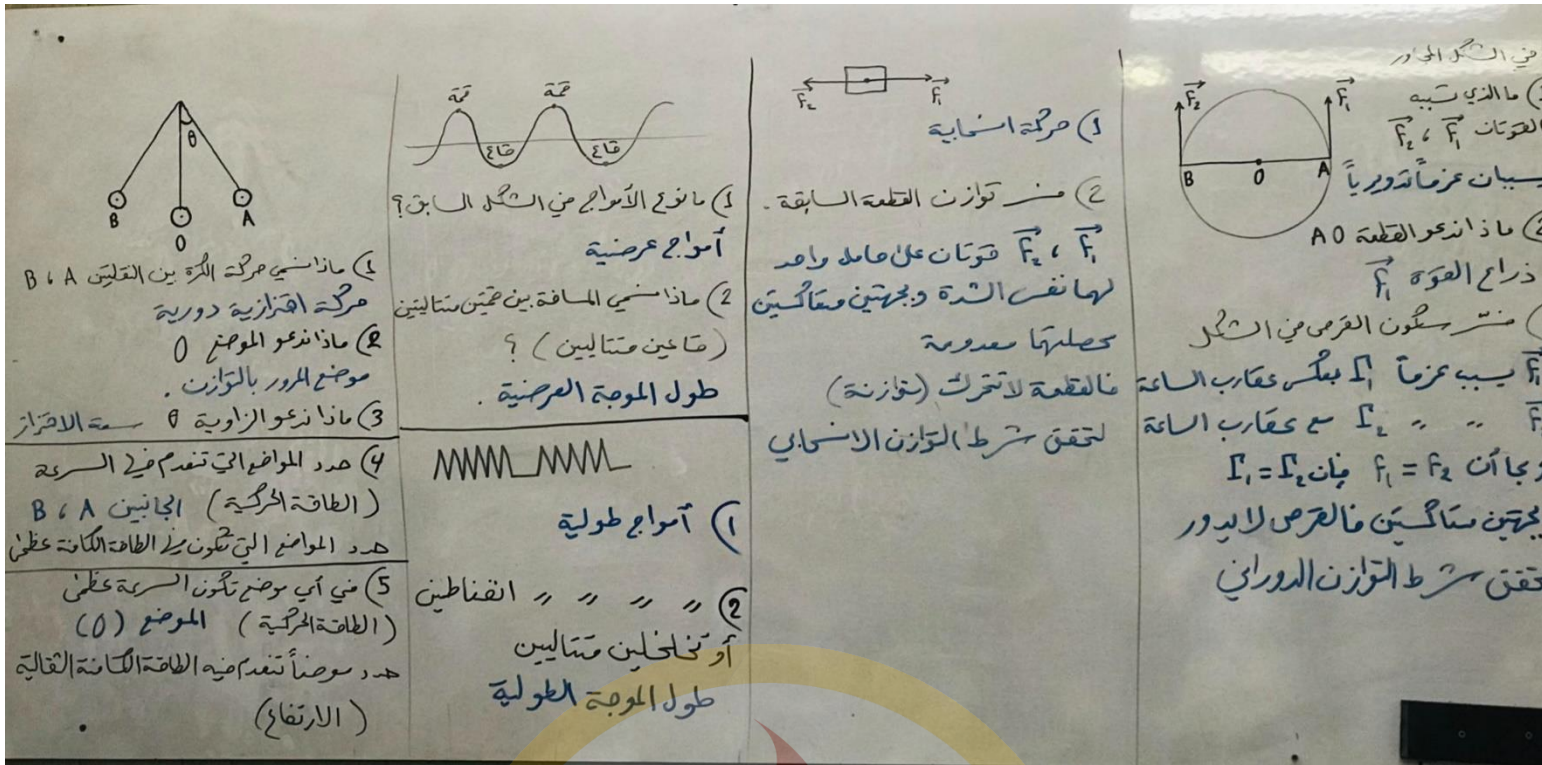 في الشكل المجاور
1) ما الذي تسببه
القوتان F₁ ، F₂
يسببان عزماً تدويرياً
F₂
F₁
B
O
A
2) ماذا ندعو القطعة AO
ذراع القوة F₁
) فسّر سكون القرص في الشكل
F₁ يسبب عزماً Γ₁ بعكس عقارب الساعة
F₂ " " Γ₂ مع عقارب الساعة
وبما أن F₁ = F₂ فإن Γ₁ = Γ₂
بجهتين متعاكستين فالقرص لا يدور
تحقق شرط التوازن الدوراني
F₂
F₁
1) حركة انسحابية
2) فسر توازن القطعة السابقة .
F₁ ، F₂ قوتان على حامل واحد
لهما نفس الشدة وبجهتين متعاكستين
محصلتهما معدومة
فالقطعة لا تتحرك (متوازنة)
لتحقق شرط التوازن الانسحابي
قمة
قمة
قاع
قاع
1) ما نوع الأمواج في الشكل السابق ؟
أمواج عرضية
2) ماذا نسمي المسافة بين قمتين متتاليتين
(قاعين متتاليين) ؟
طول الموجة العرضية .
1) أمواج طولية
2) " " " " انضغاطين
أو تخلخلين متتاليين
طول الموجة الطولية
θ
B
O
A
1) ماذا نسمي حركة الكرة بين النقطتين A ، B
حركة اهتزازية دورية
2) ماذا ندعو الموضع O
موضع المرور بالتوازن .
3) ماذا ندعو الزاوية θ سعة الاهتزاز
4) حدد المواضع التي تنعدم فيها السرعة
(الطاقة الحركية) الجانبين A ، B
حدد المواضع التي تكون فيها الطاقة الكامنة عظمى
5) في أي موضع تكون السرعة عظمى
(الطاقة الحركية) الموضع (O)
حدد موضعاً تنعدم فيه الطاقة الكامنة الثقالية
(الارتفاع)